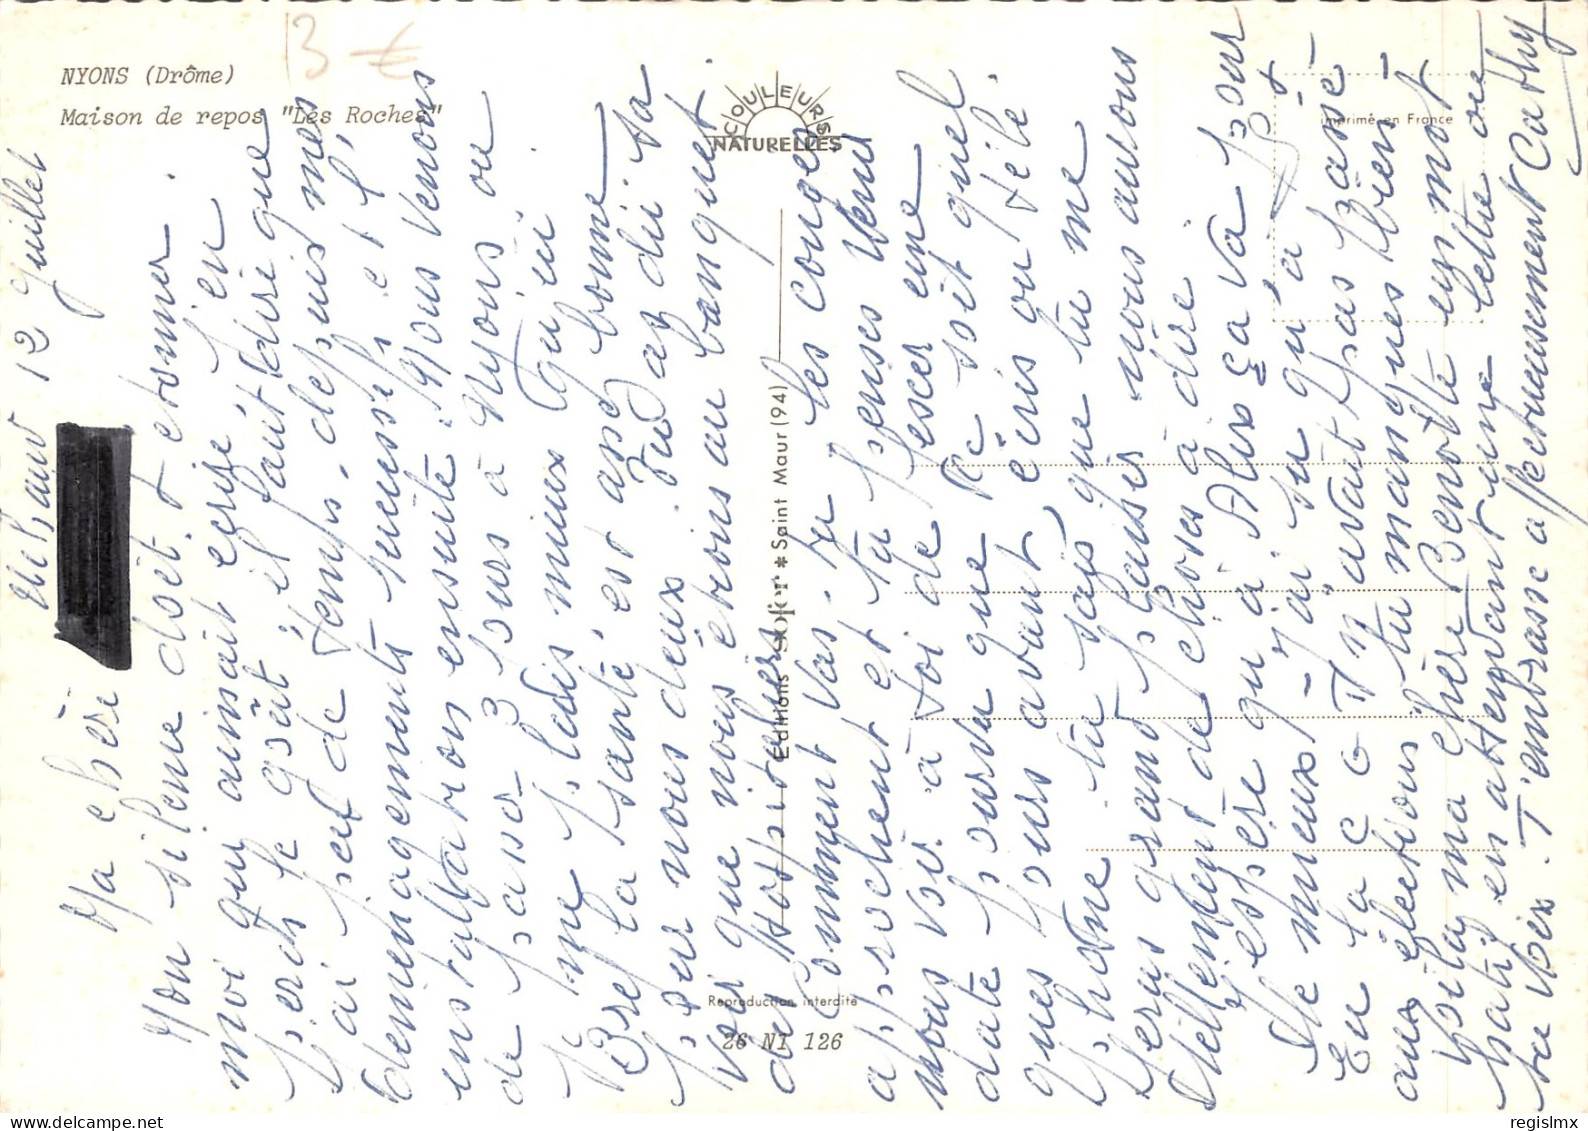 NYONS (Drôme)
Maison de repos "Les Roches"
3 €
COULEURS
NATURELLES
imprimé en France
Editions SOFER * Saint Maur (94)
Reproduction interdite
26 NI 126
12 Juillet
Ma chère
Mon silence doit t'etonner.
moi qui aimait ecrire, j'en
perds le goût, il faut dire que
j'ai peu de temps, depuis mes
demenagements successifs et l'
installation ensuite. Nous venons
de passer 3 jours à Nyons ou
je me plais mieux qu'ici
Bref la santé est assé bonne
pour nous deux
voir que nous étions au banquet
des Hospitaliers
Comment vas-tu les conges
approchent et tu penses venir
nous voir à toi de fixer une
date pourvu que ce soit quel
ques jours avant, écris ou télé
phone tu sais que tu me
feras grand plaisir nous aurons
tellement de choses à dire
J'espère qu'à Alix ça va pour
le mieux - j'ai su qu'à
la C G T n'avait pas passé
aux élections tu manques bien
ma chère Benoite un mot
en attendant une lettre ou
ta voix. T'embrasse affectueusement Cathy
regislmx